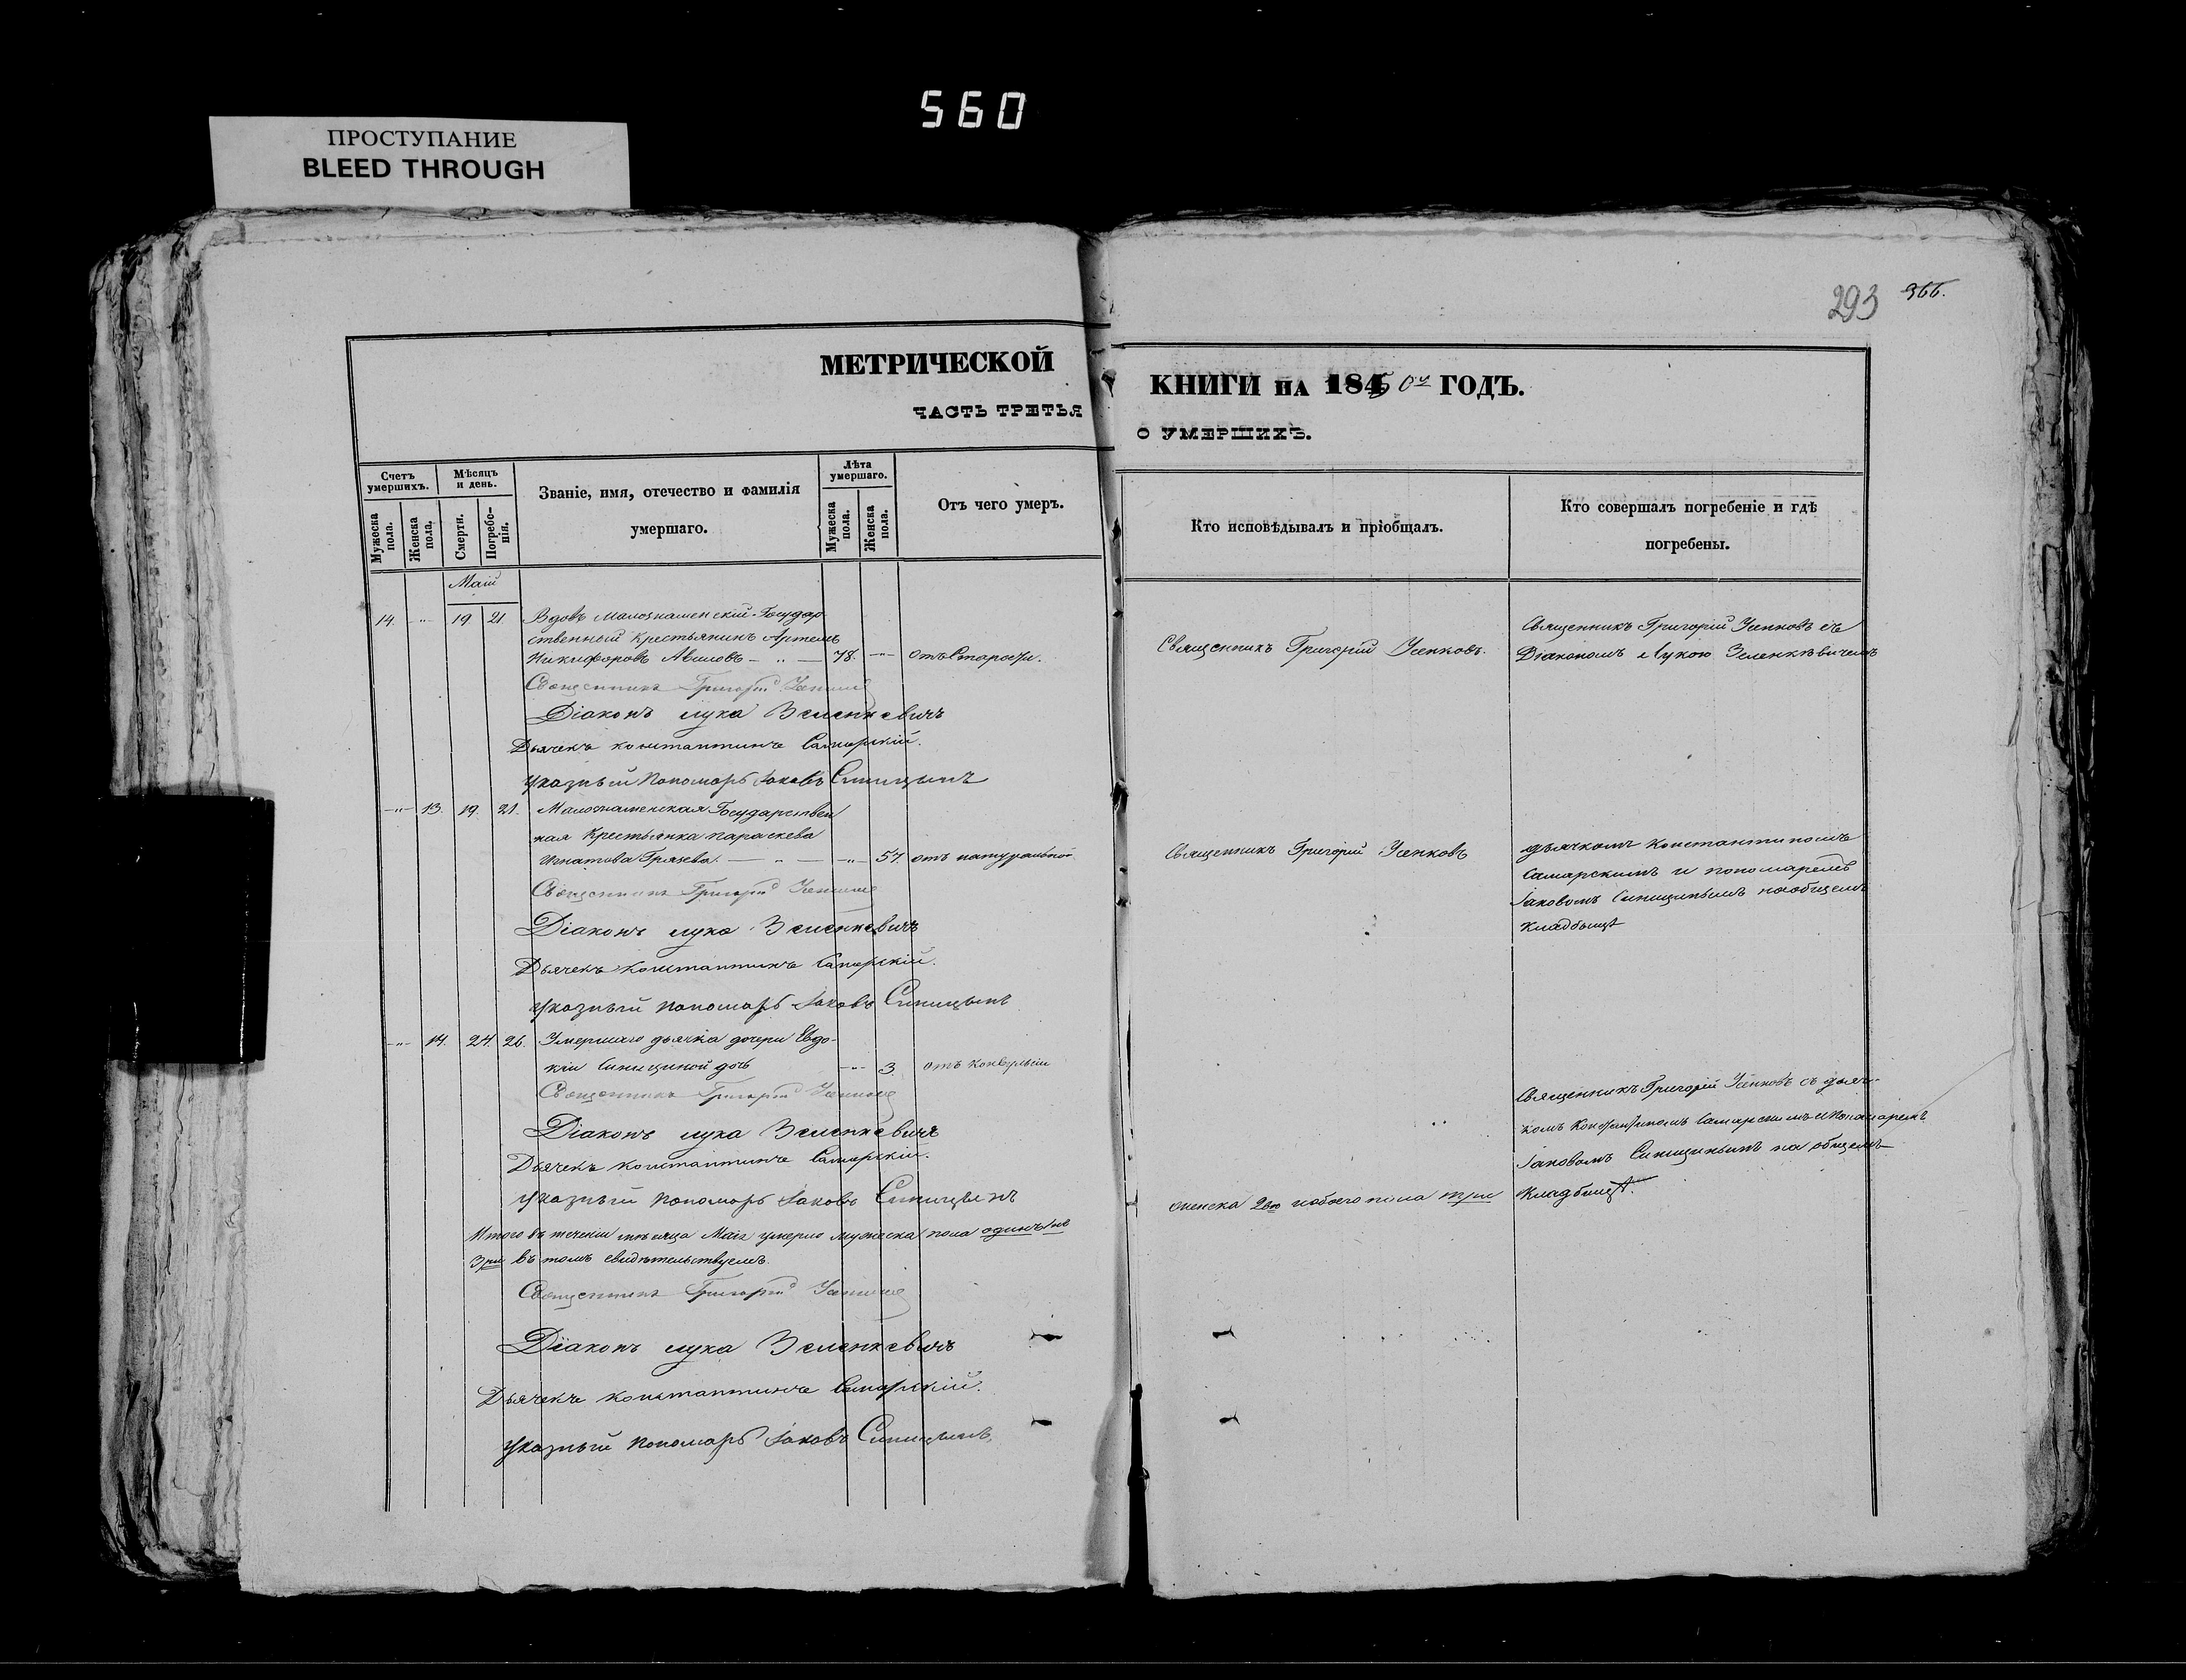 560
ПРОСТУПАНИЕ
BLEED THROUGH
293 366.
МЕТРИЧЕСКОЙ
ЧАСТЬ ТРЕТЬЯ
КНИГИ НА 1850й ГОДЪ.
О УМЕРШИХЪ.
Счетъ умершихъ.
Мужеска пола.
Женска пола.
Мѣсяцъ и день.
Смерти.
Погребенія.
Званіе, имя, отечество и фамилія
умершаго.
Лѣта умершаго.
Мужеска пола.
Женска пола.
Отъ чего умеръ.
Кто исповѣдывалъ и пріобщалъ.
Кто совершалъ погребеніе и гдѣ
погребены.
Маій
14. -"- 19 21 Вдовъ Малознаменскій Государ
ственный крестьянинъ Артемъ
Никифоровъ -"- 78. -"- отъ Старости.
Священникъ Григорій Усенковъ.
Священникъ Григорій Усенковъ съ
Діакономъ Лукою Зеленкѣвичемъ
Священникъ Григорій Усенковъ
Діаконъ лука Зеленкевичъ
Дьячекъ константинъ Самарскій.
Указный пономарь Іаковъ Синицынъ
-"- 13. 19. 21. Малознаменская Государствен
ная Крестьянка параскева
Игнатова Грязева. -"- -"- 57. отъ натуральной
Священникъ Григорій Усенковъ
дьячкомъ Константиномъ
Самарскимъ и пономаремъ
Іаковомъ Синицынымъ на общемъ
кладбищѣ
Священникъ Григорій Усенковъ
Діаконъ лука Зеленкевичъ
Дьячекъ константинъ Самарскій.
Указный пономарь Іаковъ Синицынъ
-"- 14. 24. 26. Умершаго дьячка дочери Евдо-
кіи Синициной дочь -"- 3. отъ конвульсіи
Священникъ Григорій Усенковъ
Діаконъ лука Зеленкевичъ
Дьячекъ константинъ Самарскій.
Указный пономарь Іаковъ Синицынъ
Священникъ Григорій Усенковъ съ дьяч-
комъ Константиномъ Самарскимъ и Пономаремъ
Іаковомъ Синицынымъ на общемъ
Кладбищѣ.
Итого въ теченіи мѣсяца Маія умерло мужеска пола одинъ
женска 2ое и обоего пола три
Три въ томъ свидѣтельствуемъ.
Священникъ Григорій Усенковъ
Діаконъ лука Зеленкевичъ
Дьячекъ константинъ Самарскій.
Указный пономарь Іаковъ Синицынъ